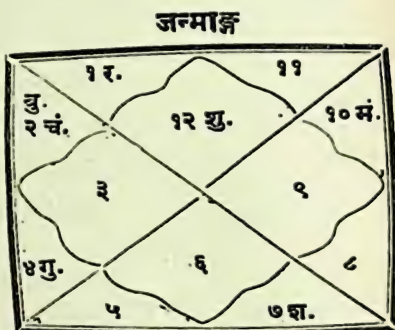 जन्माङ्ग
१ र.
११
बु.
२ चं.
१२ शु.
१० मं.
३
९
४ गु.
६
८
५
७ श.